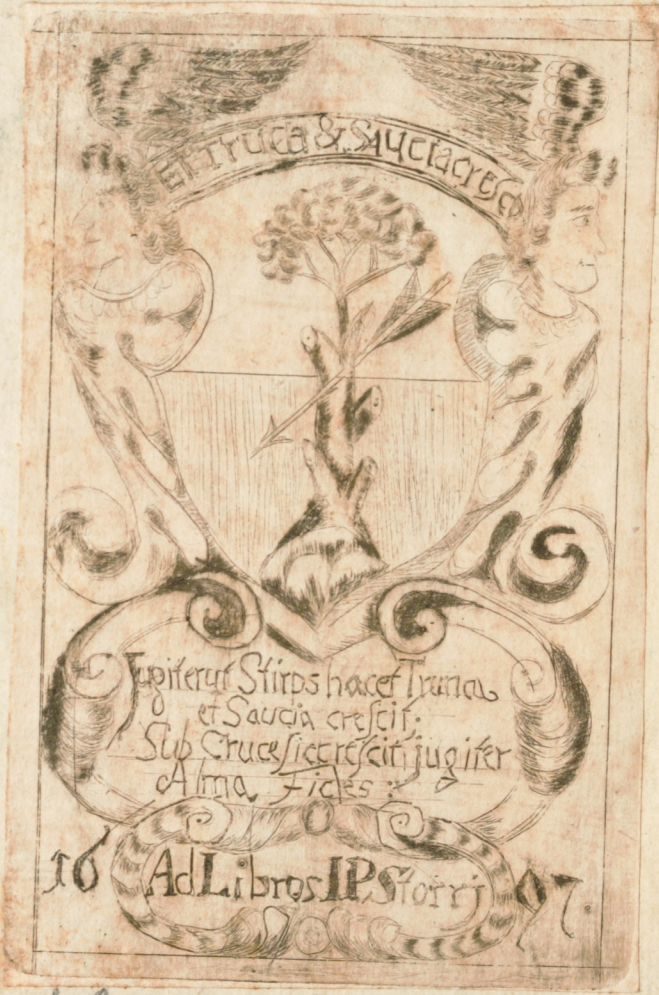 Et Truca & Sauciacresco
Jugiterut Stirps hacet Trunca
et Saucia crescit;
Sub Cruce siccrescit jugiter
Alma Fides :
16 Ad Libros IP Storri 97.